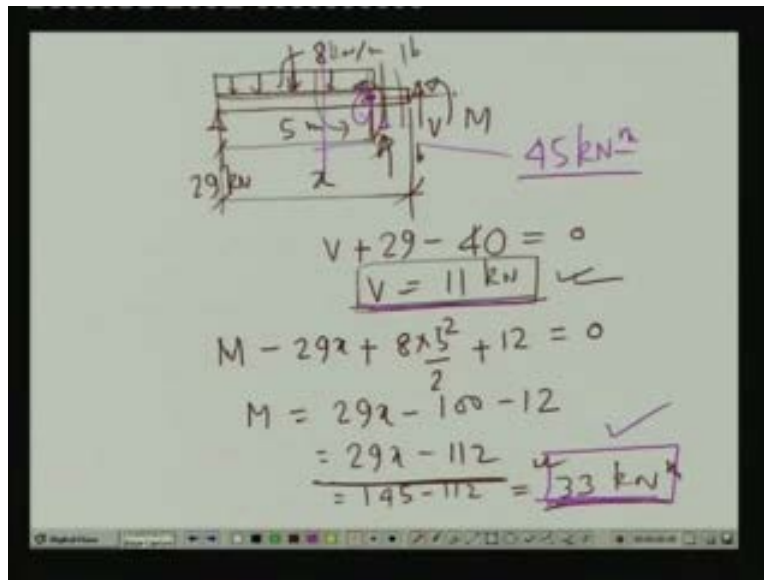 8 kN/m 1 b
5 m → V M
29 kN x 45 kN m
V + 29 - 40 = 0
V = 11 kN
M - 29x + 8×5²/2 + 12 = 0
M = 29x - 100 - 12
= 29x - 112
= 145 - 112 = 33 kN m